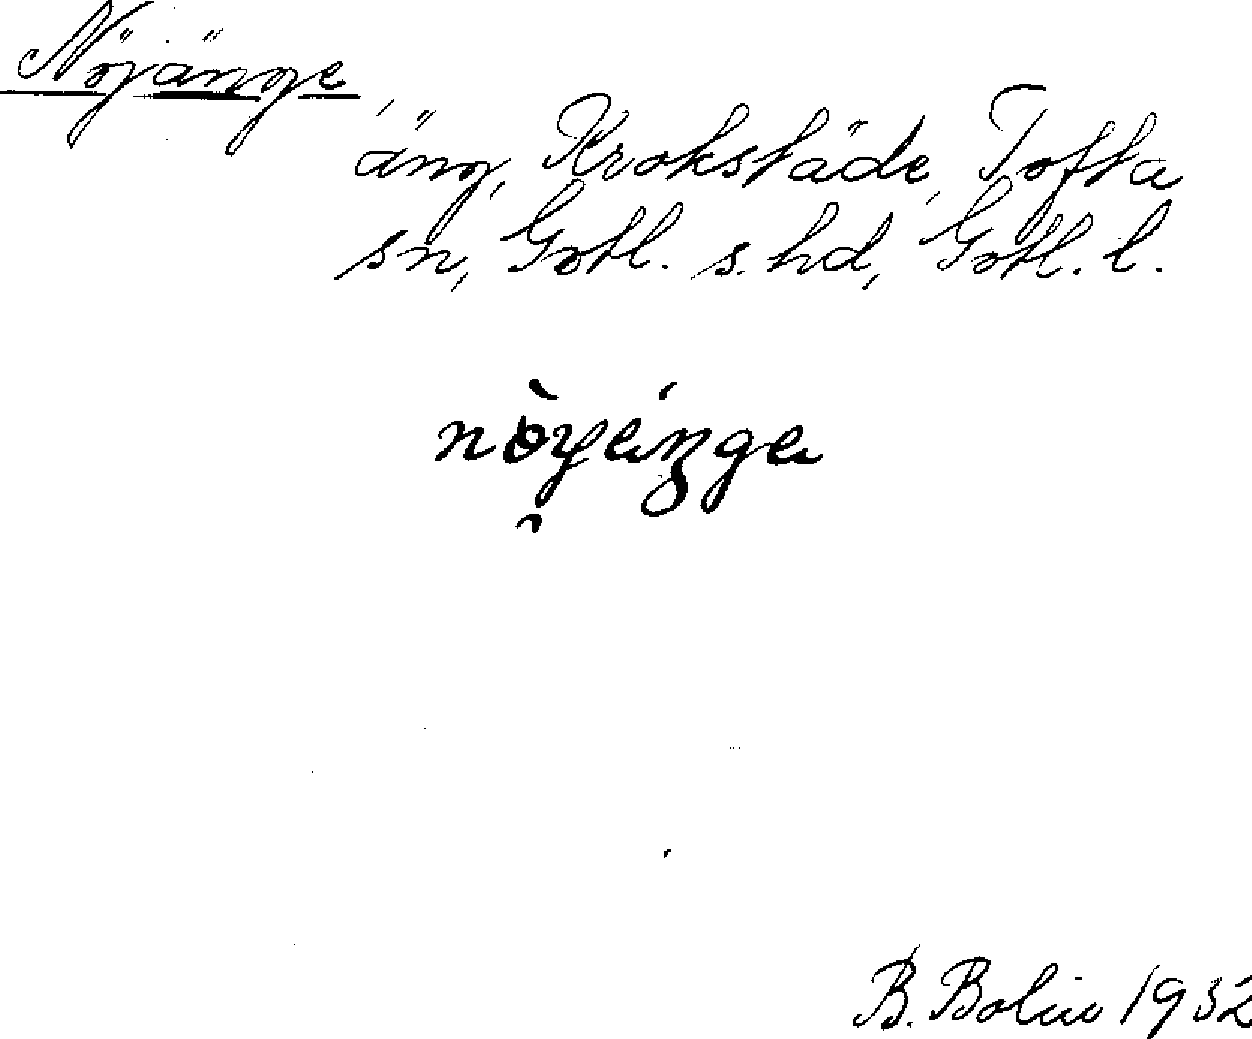 Nöjänge,
äng, Krokstäde, Tofta
sn, Gotl. s. hd, Gotl. l.
nòyénge
B. Bolin 1932